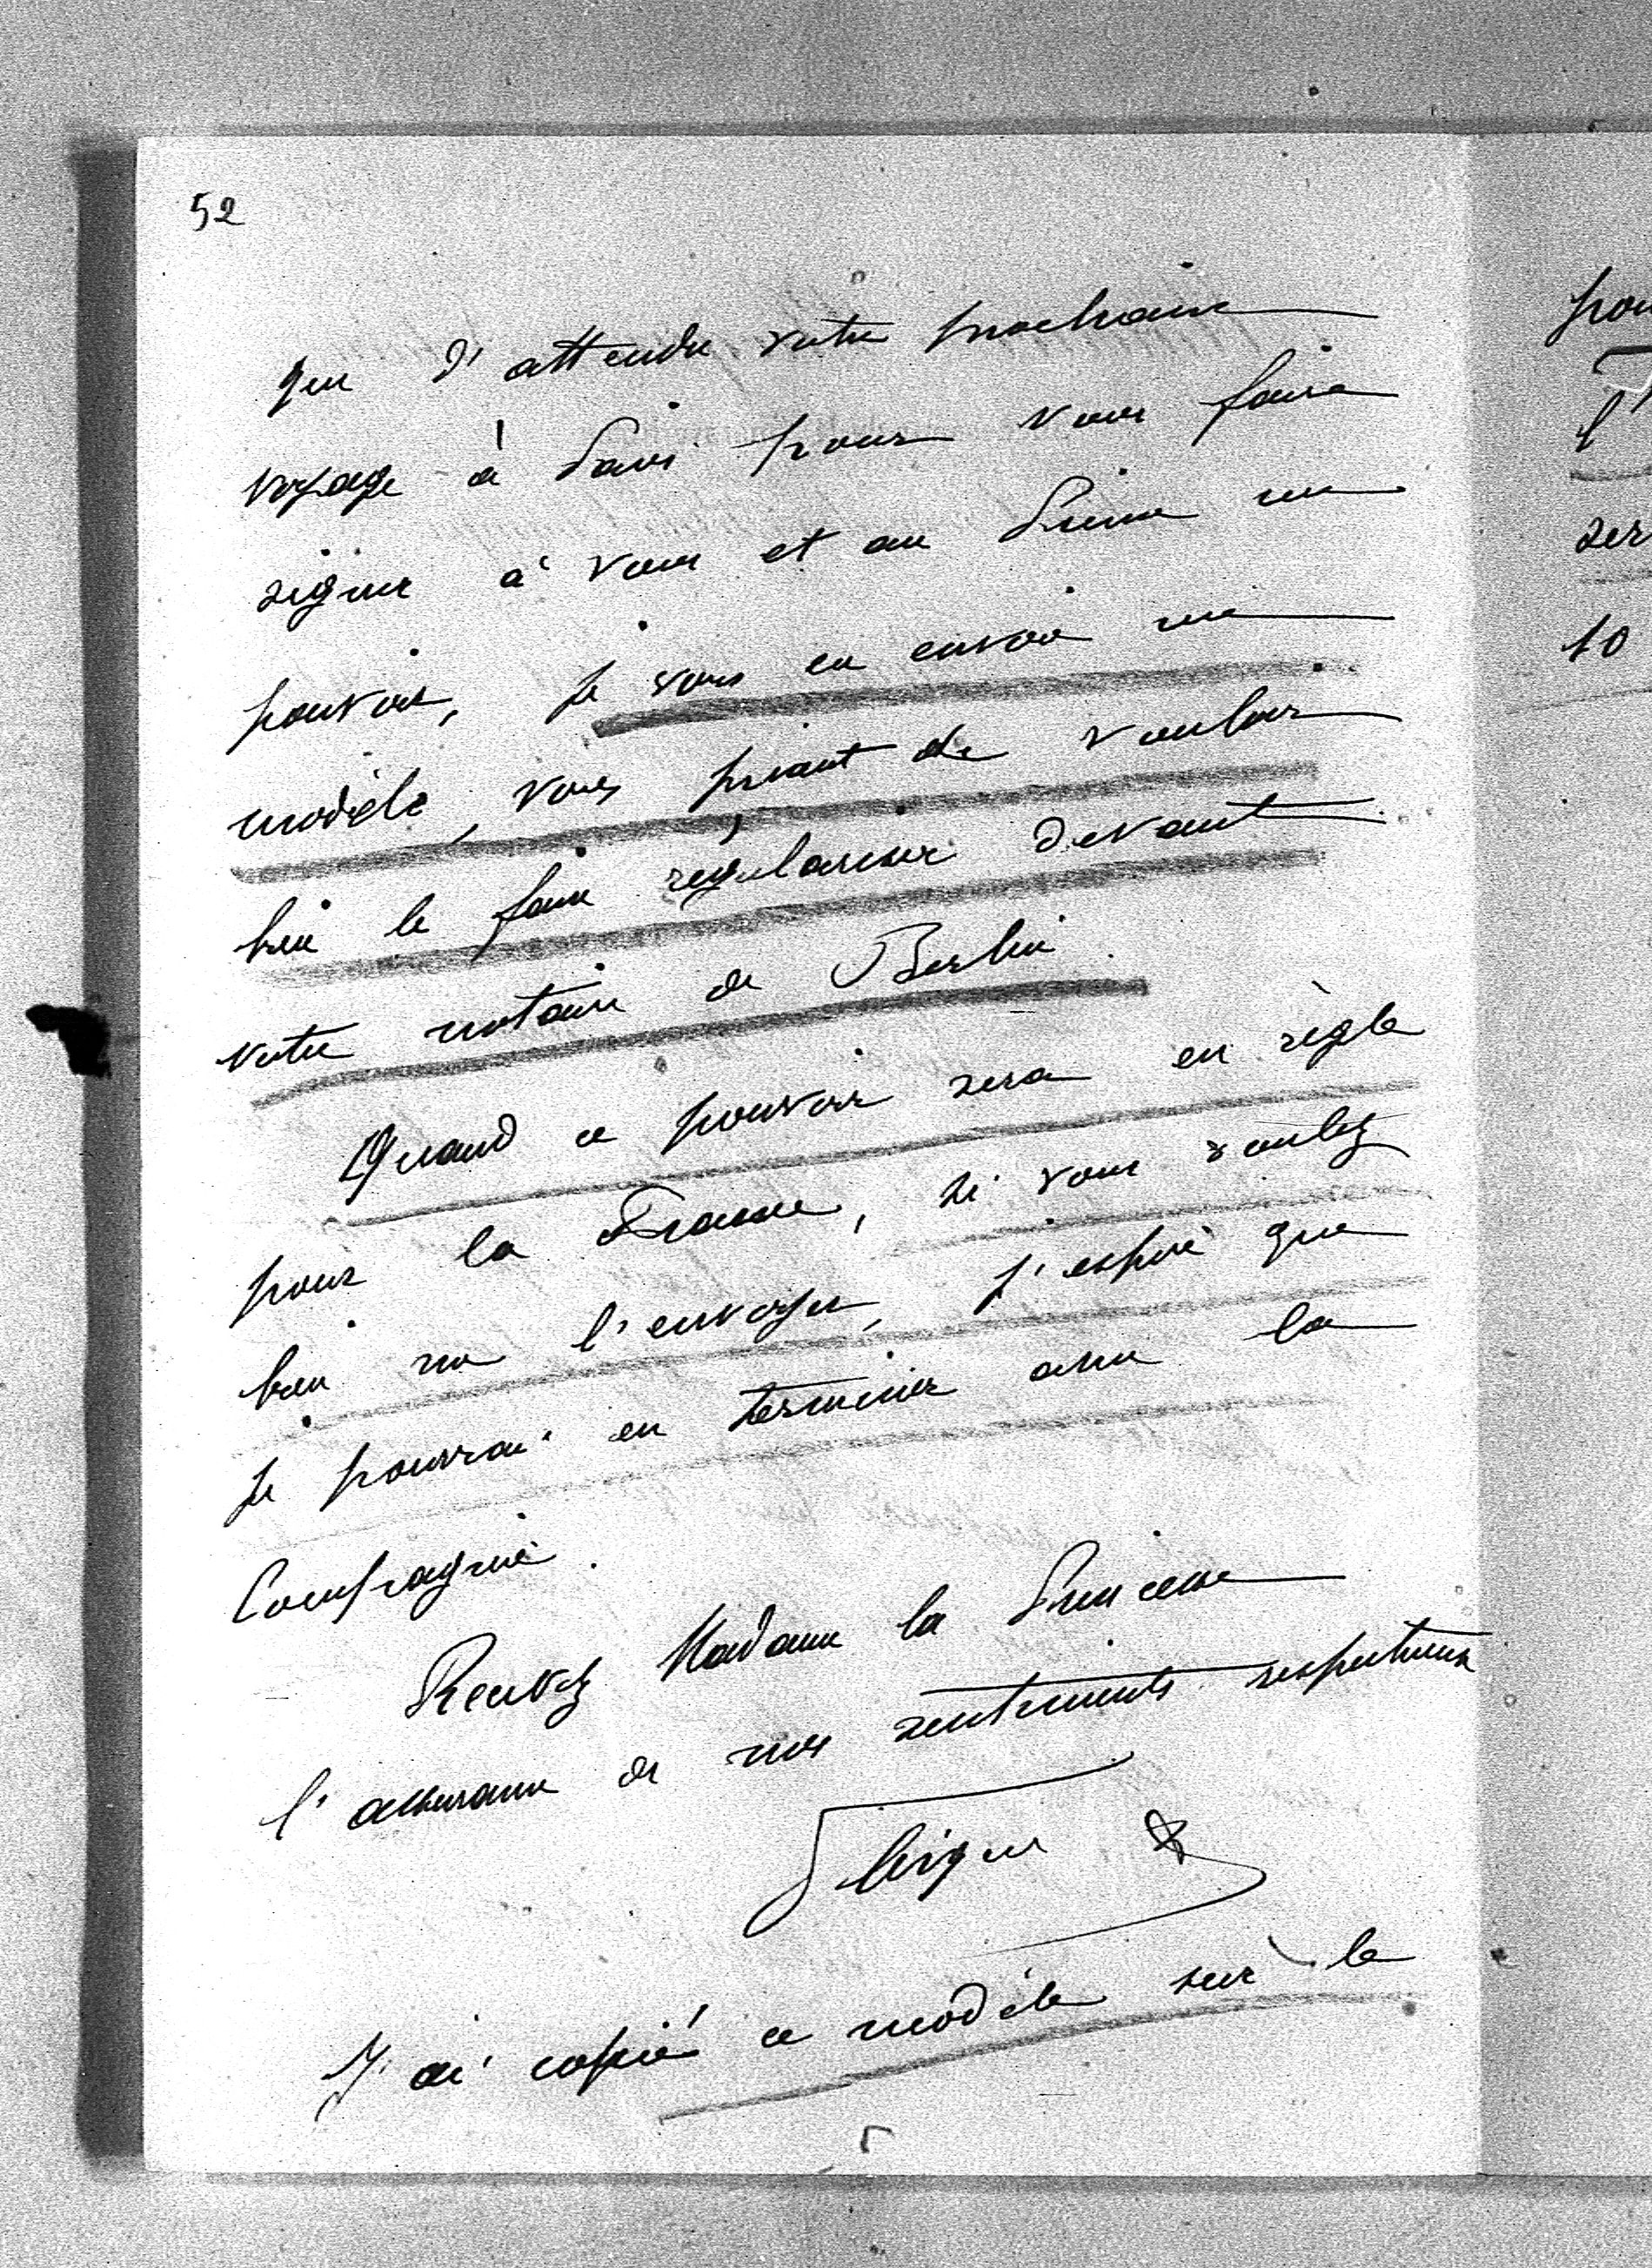 52
que d'attendre votre prochain
voyage à Paris pour vous faire
signer à vous et au Prince un
pouvoir, je vous en envoie un
modèle, vous priant de vouloir
bien le faire régulariser devant
votre notaire de Berlin.
Quand ce pouvoir sera en règle
pour la France, si vous voulez
bien me l'envoyer, j'espère que
je pourrai en terminer avec la
Compagnie.
Recevez Madame la Princesse
l'assurance de mes sentiments respectueux
J'ai copié ce modèle sur le
pou
ser
10